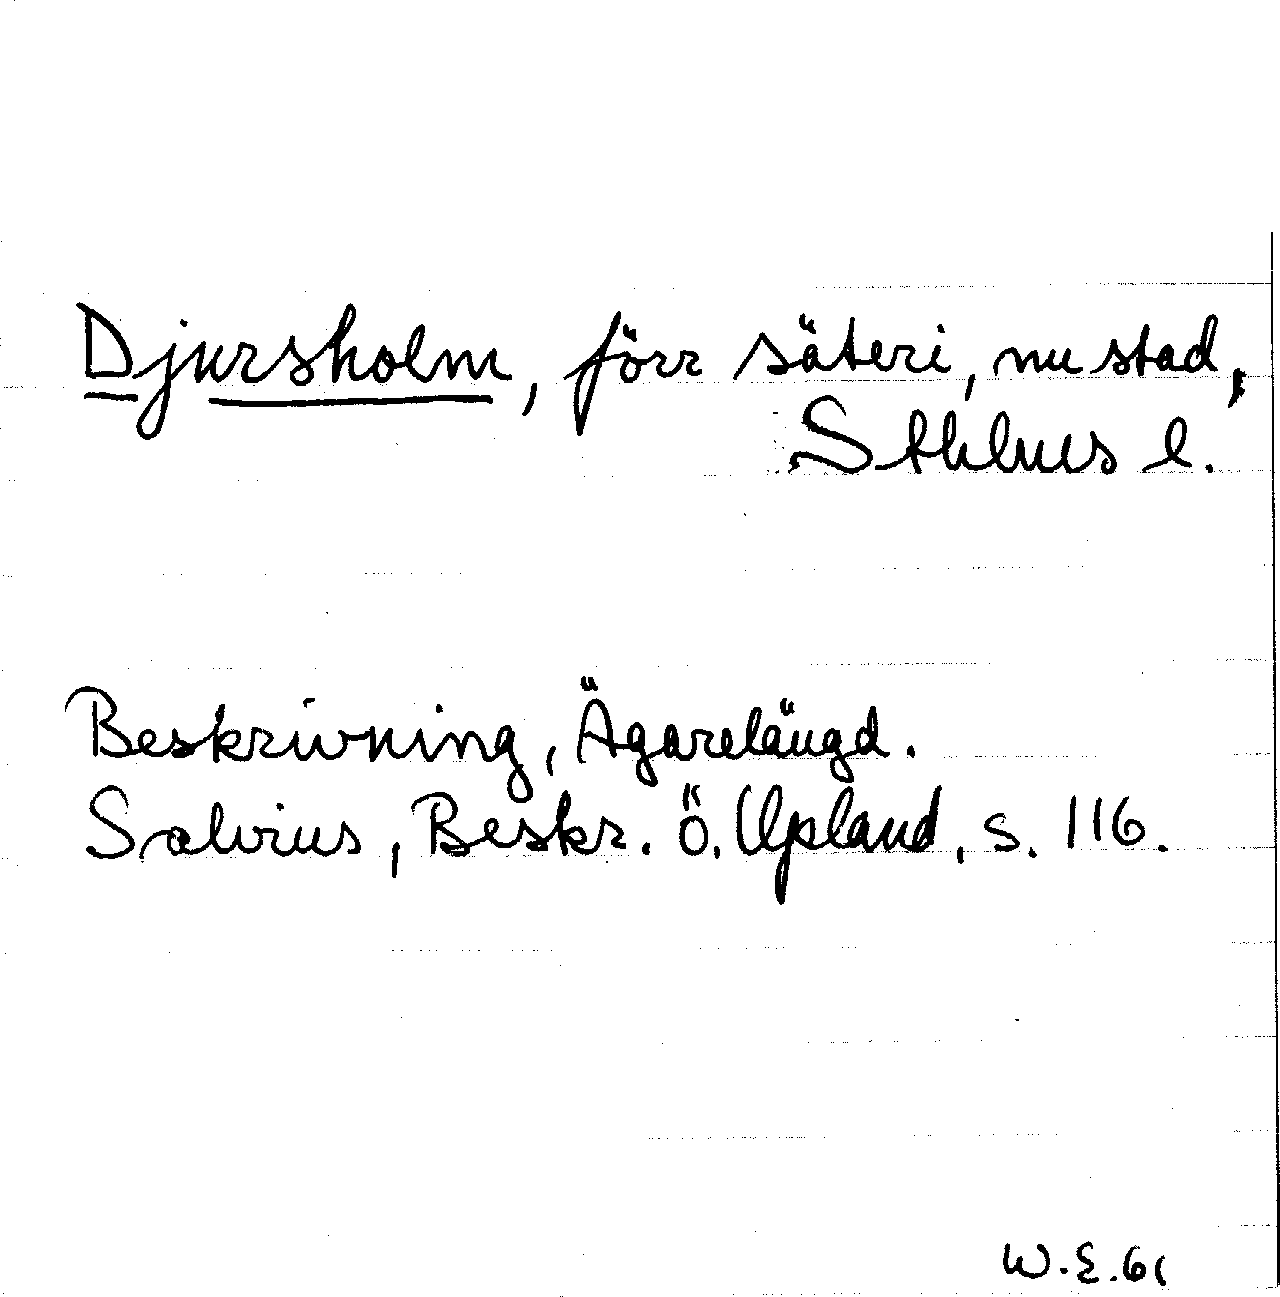 Djursholm, förr säteri, nu stad,
Sthlms l.
Beskrivning, Ägarelängd.
Salvius, Beskr. ö. Upland, s. 116.
W.E.61